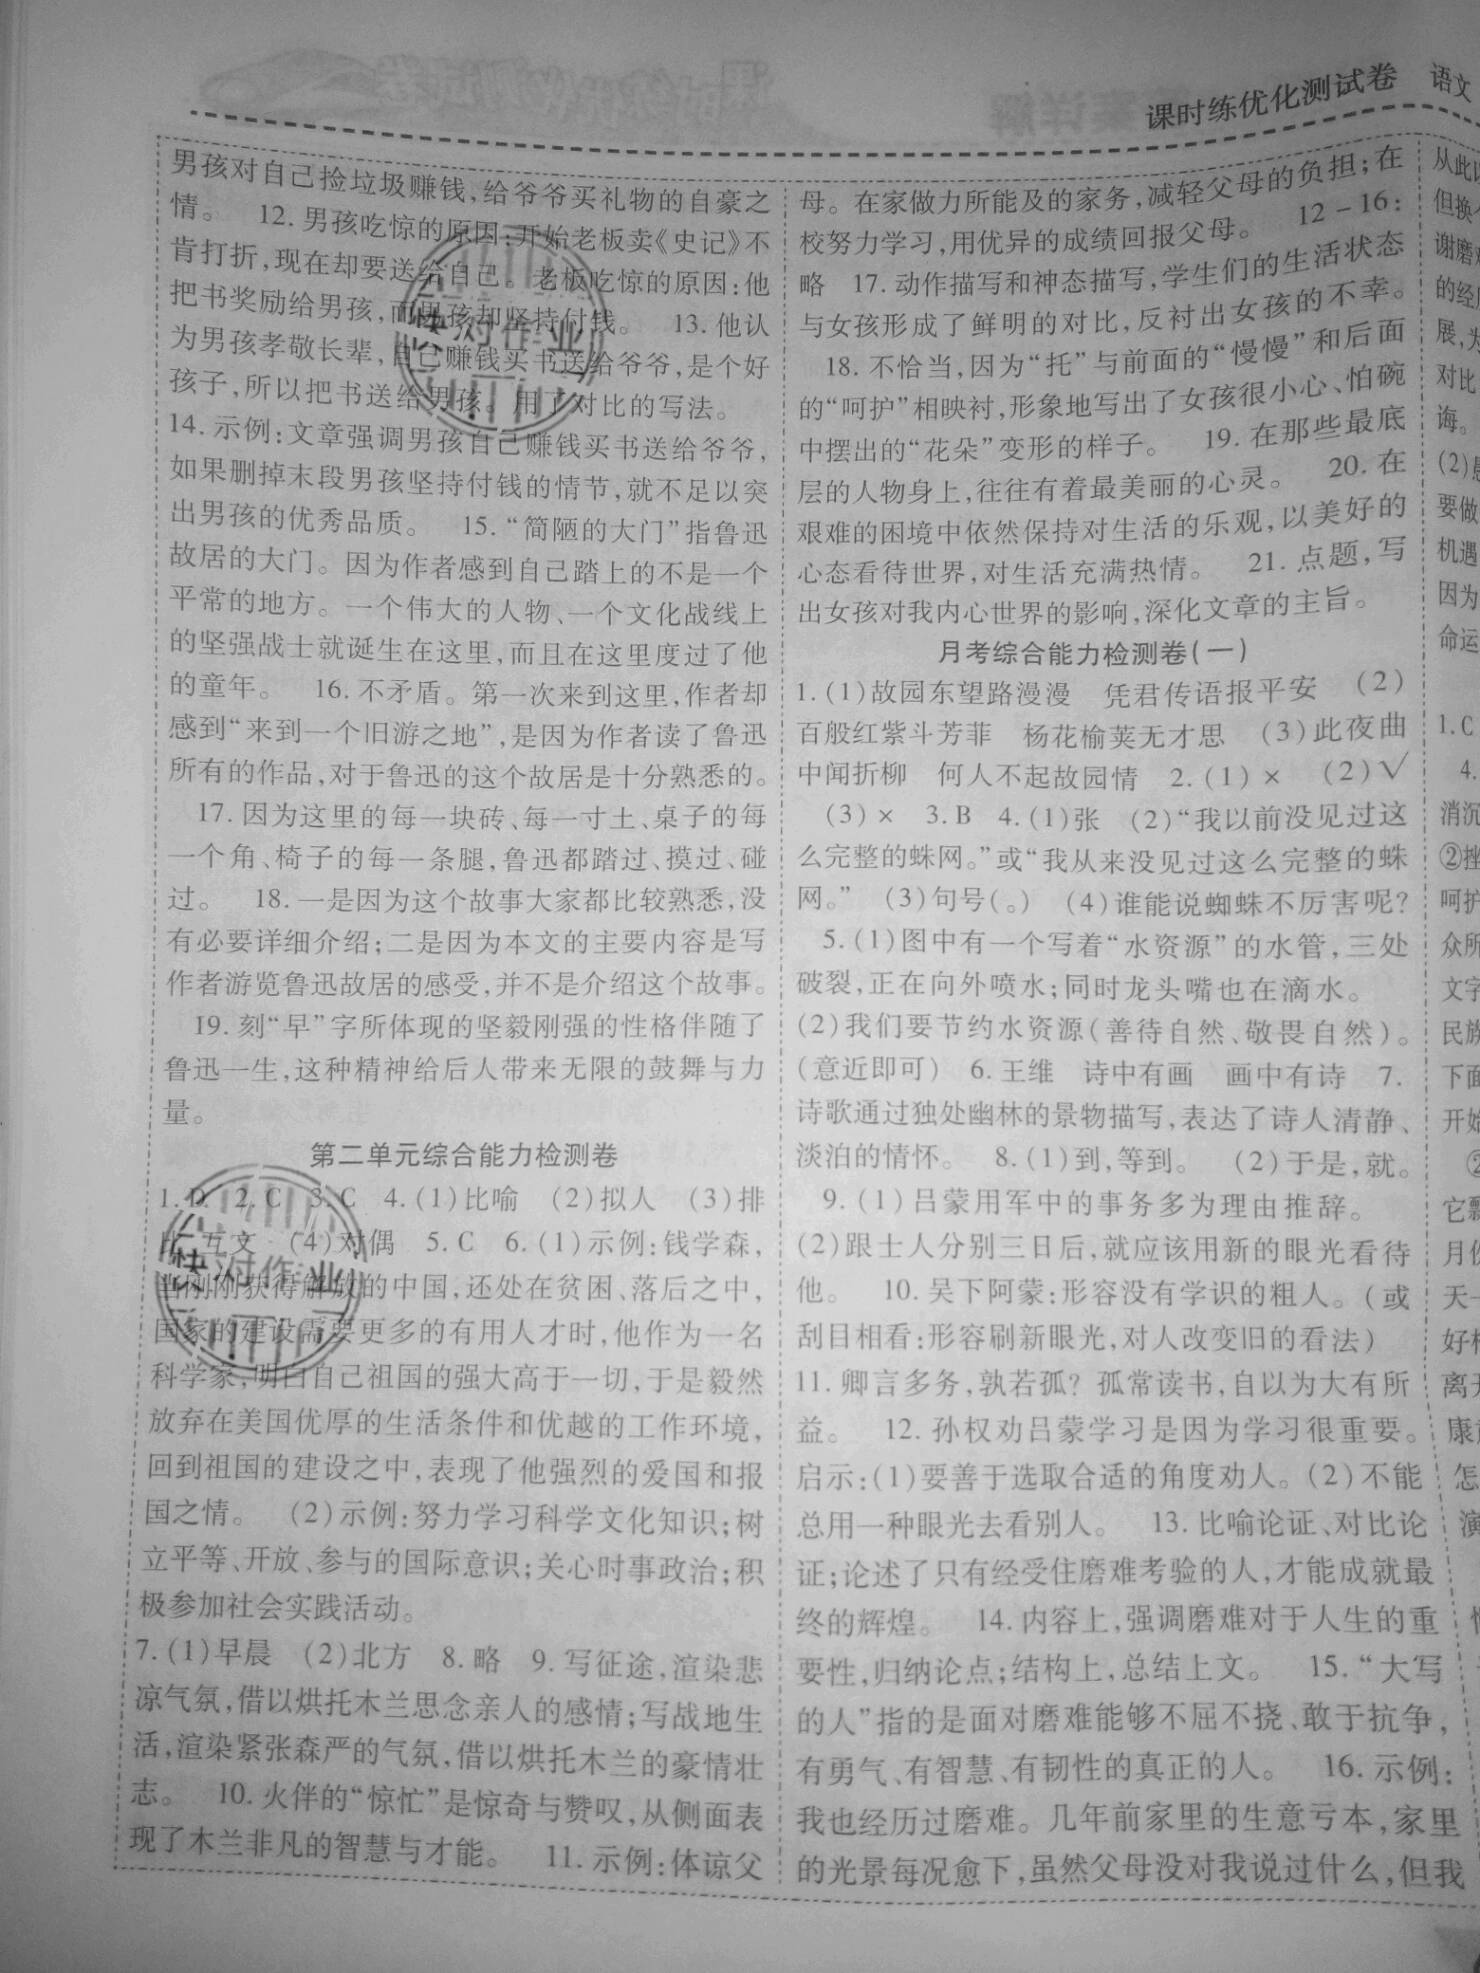 课时练优化测试卷 语文
男孩对自己捡垃圾赚钱,给爷爷买礼物的自豪之
情。 12. 男孩吃惊的原因:开始老板卖《史记》不
肯打折,现在却要送给自己。老板吃惊的原因:他
把书奖励给男孩,而男孩却坚持付钱。 13. 他认
为男孩孝敬长辈,自己赚钱买书送给爷爷,是个好
孩子,所以把书送给男孩。用了对比的写法。
14. 示例:文章强调男孩自己赚钱买书送给爷爷,
如果删掉末段男孩坚持付钱的情节,就不足以突
出男孩的优秀品质。 15. “简陋的大门”指鲁迅
故居的大门。因为作者感到自己踏上的不是一个
平常的地方。一个伟大的人物、一个文化战线上
的坚强战士就诞生在这里,而且在这里度过了他
的童年。 16. 不矛盾。第一次来到这里,作者却
感到“来到一个旧游之地”,是因为作者读了鲁迅
所有的作品,对于鲁迅的这个故居是十分熟悉的。
17. 因为这里的每一块砖、每一寸土、桌子的每
一个角、椅子的每一条腿,鲁迅都踏过、摸过、碰
过。 18. 一是因为这个故事大家都比较熟悉,没
有必要详细介绍;二是因为本文的主要内容是写
作者游览鲁迅故居的感受,并不是介绍这个故事。
19. 刻“早”字所体现的坚毅刚强的性格伴随了
鲁迅一生,这种精神给后人带来无限的鼓舞与力
量。
第二单元综合能力检测卷
1. D 2. C 3. C 4. (1)比喻 (2)拟人 (3)排
比 互文 (4)对偶 5. C 6. (1)示例:钱学森,
当刚刚获得解放的中国,还处在贫困、落后之中,
国家的建设需要更多的有用人才时,他作为一名
科学家,明白自己祖国的强大高于一切,于是毅然
放弃在美国优厚的生活条件和优越的工作环境,
回到祖国的建设之中,表现了他强烈的爱国和报
国之情。 (2)示例:努力学习科学文化知识;树
立平等、开放、参与的国际意识;关心时事政治;积
极参加社会实践活动。
7. (1)早晨 (2)北方 8. 略 9. 写征途,渲染悲
凉气氛,借以烘托木兰思念亲人的感情;写战地生
活,渲染紧张森严的气氛,借以烘托木兰的豪情壮
志。 10. 火伴的“惊忙”是惊奇与赞叹,从侧面表
现了木兰非凡的智慧与才能。 11. 示例:体谅父
母。在家做力所能及的家务,减轻父母的负担;在
校努力学习,用优异的成绩回报父母。 12-16:
略 17. 动作描写和神态描写,学生们的生活状态
与女孩形成了鲜明的对比,反衬出女孩的不幸。
18. 不恰当,因为“托”与前面的“慢慢”和后面
的“呵护”相映衬,形象地写出了女孩很小心、怕碗
中摆出的“花朵”变形的样子。 19. 在那些最底
层的人物身上,往往有着最美丽的心灵。 20. 在
艰难的困境中依然保持对生活的乐观,以美好的
心态看待世界,对生活充满热情。 21. 点题,写
出女孩对我内心世界的影响,深化文章的主旨。
月考综合能力检测卷(一)
1. (1)故园东望路漫漫 凭君传语报平安 (2)
百般红紫斗芳菲 杨花榆荚无才思 (3)此夜曲
中闻折柳 何人不起故园情 2. (1)× (2)√
(3)× 3. B 4. (1)张 (2)“我以前没见过这
么完整的蛛网。”或“我从来没见过这么完整的蛛
网。” (3)句号(。) (4)谁能说蜘蛛不厉害呢?
5. (1)图中有一个写着“水资源”的水管,三处
破裂,正在向外喷水;同时龙头嘴也在滴水。
(2)我们要节约水资源(善待自然、敬畏自然)。
(意近即可) 6. 王维 诗中有画 画中有诗 7.
诗歌通过独处幽林的景物描写,表达了诗人清静、
淡泊的情怀。 8. (1)到,等到。 (2)于是,就。
9. (1)吕蒙用军中的事务多为理由推辞。
(2)跟士人分别三日后,就应该用新的眼光看待
他。 10. 吴下阿蒙:形容没有学识的粗人。(或
刮目相看:形容刷新眼光,对人改变旧的看法)
11. 卿言多务,孰若孤? 孤常读书,自以为大有所
益。 12. 孙权劝吕蒙学习是因为学习很重要。
启示:(1)要善于选取合适的角度劝人。(2)不能
总用一种眼光去看别人。 13. 比喻论证、对比论
证;论述了只有经受住磨难考验的人,才能成就最
终的辉煌。 14. 内容上,强调磨难对于人生的重
要性,归纳论点;结构上,总结上文。 15. “大写
的人”指的是面对磨难能够不屈不挠、敢于抗争,
有勇气、有智慧、有韧性的真正的人。 16. 示例:
我也经历过磨难。几年前家里的生意亏本,家里
的光景每况愈下,虽然父母没对我说过什么,但我
从此
但换
谢磨
的经
展,
对比
诲。
(2)
要做
机遇
因为
命运
1. C
4.
消沉
②挫
呵护
众所
文字
民族
下面
开始
②
它飘
月份
天一
好样
离开
康
怎
演
快对作业
快对作业